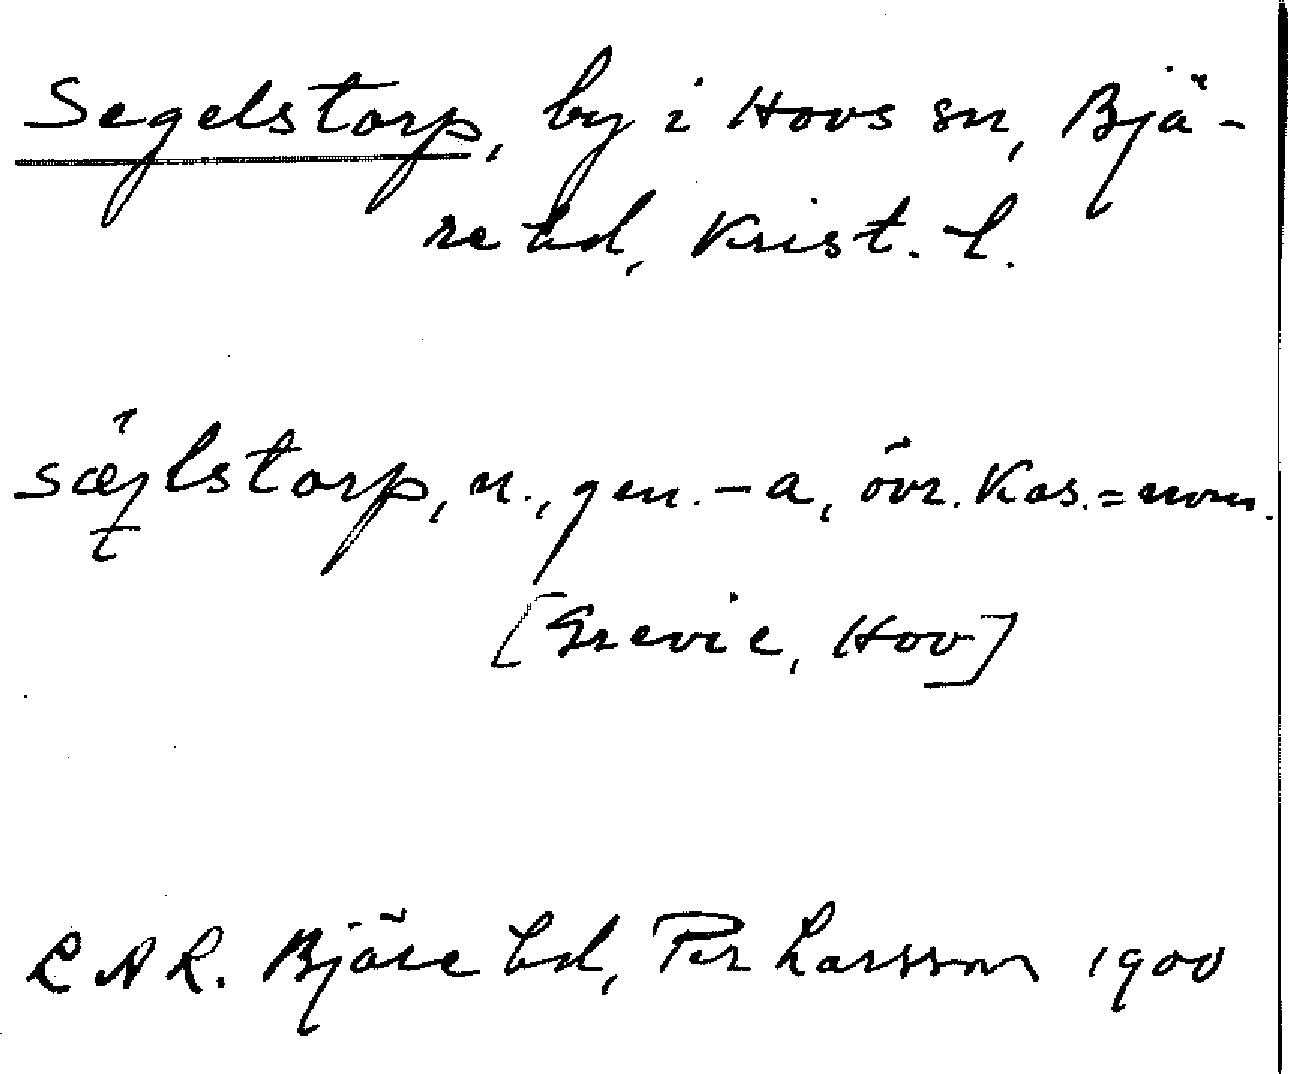 Segelstorp, by i Hovs sn, Bjä-
re hd, Krist. l.
sæjlstorp, n., gen. -a, övr. Kas. = nom.
[Grevie, Hov]
L A L. Bjäre hd, Per Larsson 1900